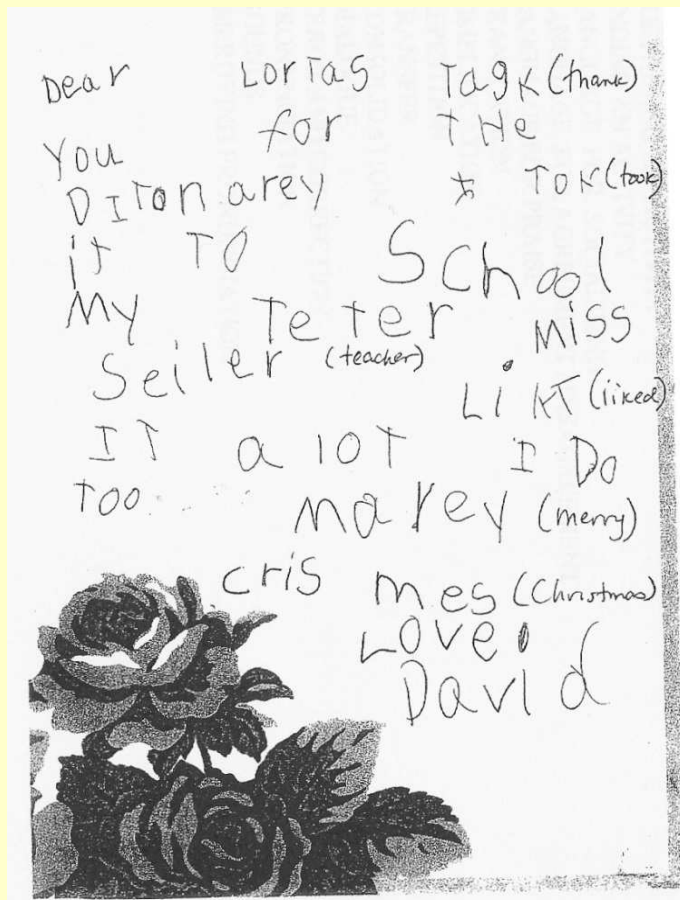 Dear LorTas Tagk (thank)
You for THe
DITonarey I TOK (took)
it TO School
My TeTer Miss
Seiler (teacher) LiKT (liked)
IT a lOT I Do
TOO marey (merry)
cris mes (Christmas)
Love
David